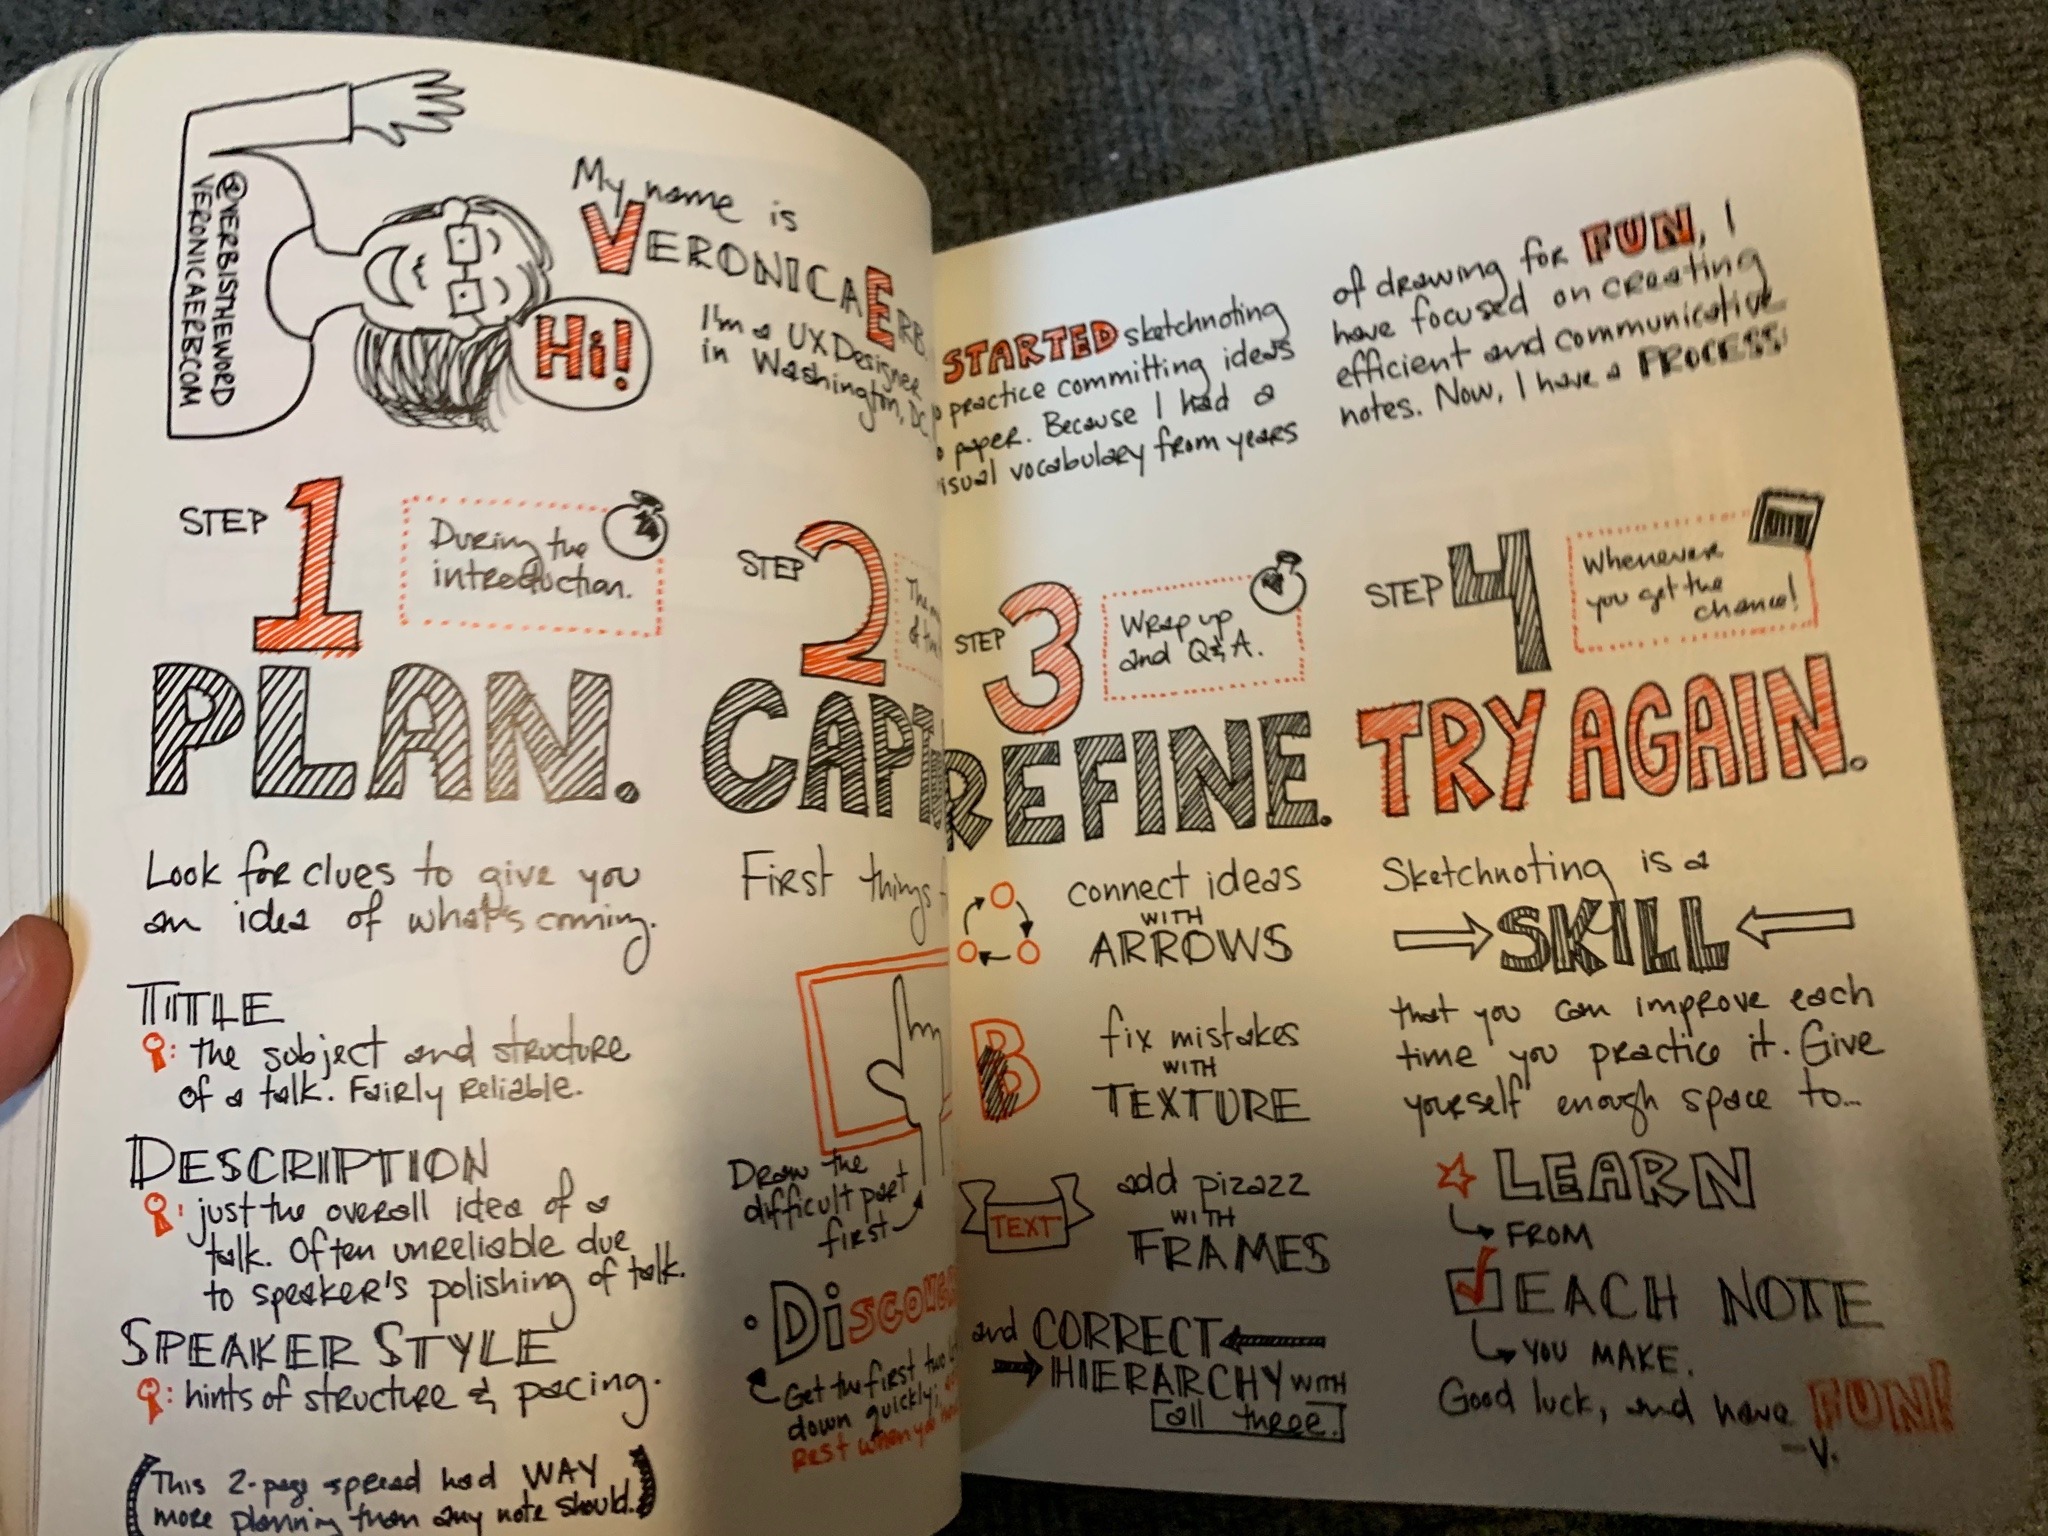 @VERBISTHEWORD
VERONICAERB.COM
Hi!
My name is
VERONICA ERB.
I'm a UX Designer
in Washington, DC
STARTED sketchnoting
practice committing ideas
paper. Because I had a
visual vocabulary from years
of drawing for FUN, I
have focused on creating
efficient and communicative
notes. Now, I have a PROCESS:
STEP 1
During the
introduction.
PLAN.
Look for clues to give you
an idea of what's coming.
TITLE
: the subject and structure
of a talk. Fairly reliable.
DESCRIPTION
: just the overall idea of a
talk. Often unreliable due
to speaker's polishing of talk.
SPEAKER STYLE
: hints of structure & pacing.
(This 2-page spread had WAY
more planning than any note should.)
STEP 2
The
of the
CAPTU
First things
Draw the
difficult part
first
• Discover
Get the first two
down quickly;
Rest when you
STEP 3
Wrap up
and Q&A.
REFINE.
connect ideas
WITH
ARROWS
B
fix mistakes
WITH
TEXTURE
TEXT
add pizazz
WITH
FRAMES
and CORRECT
HIERARCHY WITH
all three.
STEP 4
Whenever
you get the
chance!
TRY AGAIN.
Sketchnoting is a
SKILL
that you can improve each
time you practice it. Give
yourself enough space to...
LEARN
FROM
EACH NOTE
YOU MAKE.
Good luck, and have FUN!
-V.